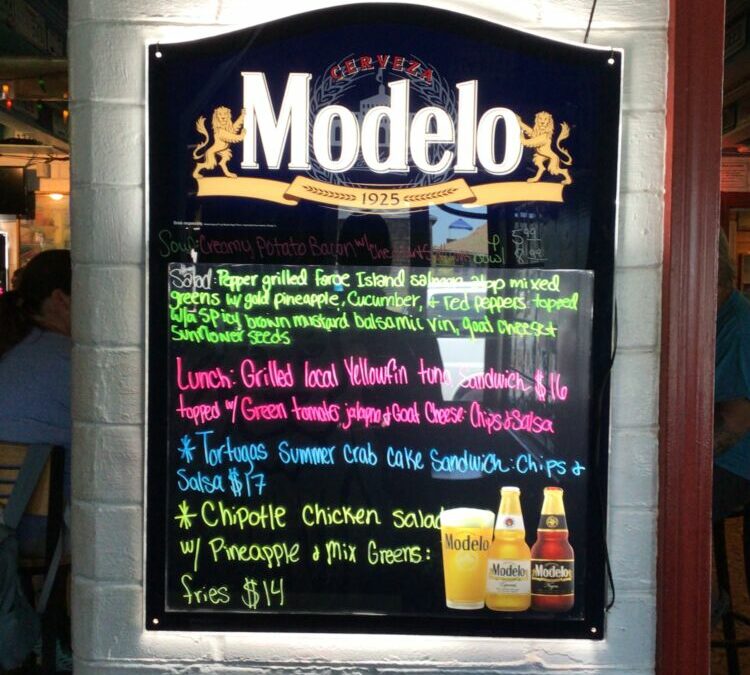 CERVEZA
Modelo
1925
Soup: Creamy Potato Bacon w/ cheddar
5.99
8.99
Salad: Pepper grilled Faroe Island salmon atop mixed
greens w/ gold pineapple, Cucumber, + red peppers topped
w/ a spicy brown mustard balsamic vin, goat cheese +
Sunflower seeds
Lunch: Grilled local Yellowfin tuna Sandwich $16
topped w/ Green tomato, jalapno & Goat Cheese: Chips & Salsa
* Tortugas Summer crab cake Sandwich: Chips &
Salsa $17
* Chipotle Chicken Salad
w/ Pineapple & Mix Greens:
fries $14
Modelo
Modelo
Modelo